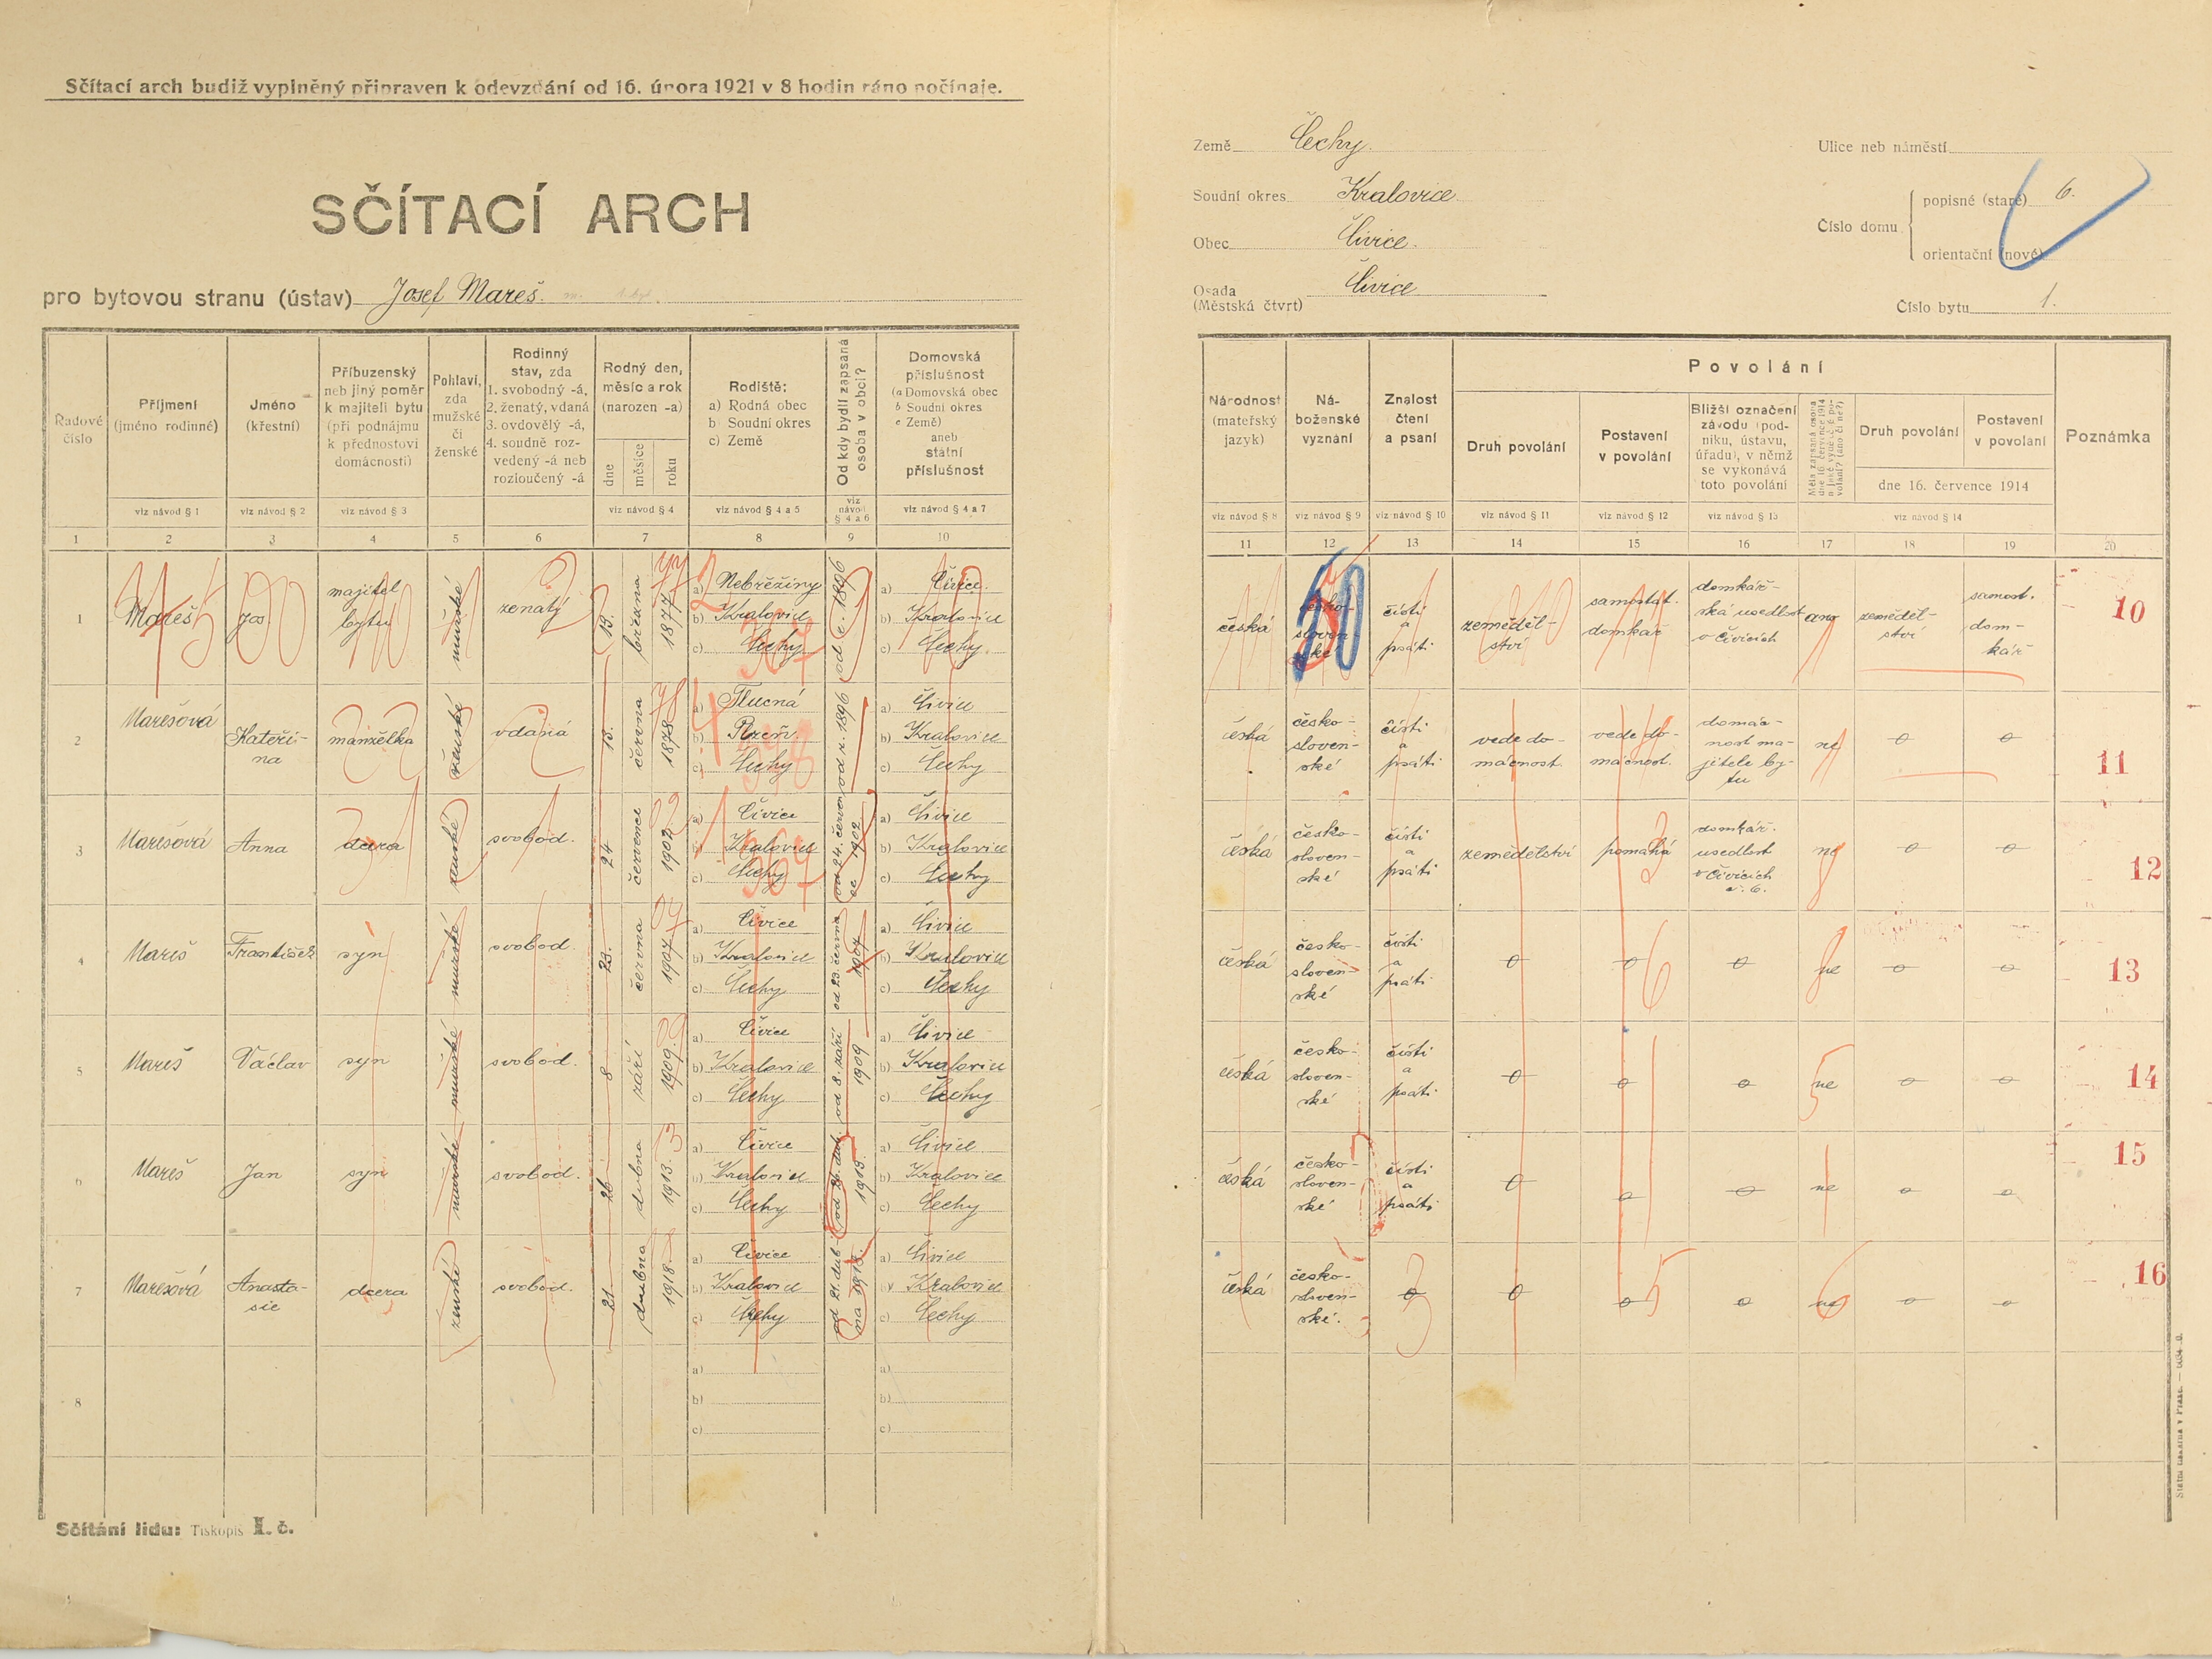 Sčítací arch budiž vyplněný připraven k odevzdání od 16. února 1921 v 8 hodin ráno počínaje.
SČÍTACÍ ARCH
pro bytovou stranu (ústav) Josef Mareš.
Země Čechy.
Soudní okres Kralovice
Obec Čivice.
Osada Čivice
(Městská čtvrt)
Ulice neb náměstí
Číslo domu
popisné (staré) 6.
orientační (nové)
Číslo bytu 1.
Řadové číslo
Příjmení (jméno rodinné)
Jméno (křestní)
Příbuzenský neb jiný poměr k majiteli bytu (při podnájmu k přednostovi domácnosti)
Pohlaví, zda mužské či ženské
Rodinný stav, zda 1. svobodný -á, 2. ženatý, vdaná 3. ovdovělý -á, 4. soudně rozvedený -á neb rozloučený -á
Rodný den, měsíc a rok (narozen -a)
dne měsíce roku
Rodiště: a) Rodná obec b) Soudní okres c) Země
Od kdy bydlí zapsaná osoba v obci?
Domovská příslušnost (a Domovská obec b Soudní okres c Země) aneb státní příslušnost
viz návod § 1 viz návod § 2 viz návod § 3 viz návod § 4 viz návod § 4 a 5 viz návod § 4 a 6 viz návod § 4 a 7
1 2 3 4 5 6 7 8 9 10
Národnost (mateřský jazyk)
Náboženské vyznání
Znalost čtení a psaní
Povolání
Druh povolání
Postavení v povolání
Bližší označení závodu (podniku, ústavu, úřadu), v němž se vykonává toto povolání
Měla zapsaná osoba dne 16. července 1914 nějaké výdělečné povolání? (ano či ne?)
Druh povolání
Postavení v povolání
dne 16. července 1914
Poznámka
viz návod § 8 viz návod § 9 viz návod § 10 viz návod § 11 viz návod § 12 viz návod § 13 viz návod § 14
11 12 13 14 15 16 17 18 19 20
1 Mareš Jos. majitel bytu mužské ženatý 13. března 1877 a) Nebřežiny b) Kralovice c) Čechy od r. 1896 a) Čivice b) Kralovice c) Čechy
česká česko-slovenské čísti a psáti zemědělství samostat. domkář domkářská usedlost v Čivicích ano zemědělství samost. domkář 10
2 Marešová Kateřina manželka ženské vdaná 13. června 1878 a) Tlucná b) Plzeň c) Čechy od r. 1896 a) Čivice b) Kralovice c) Čechy
česká česko-slovenské čísti a psáti vede domácnost vede domácnost. domácnost majitele bytu ne 0 0 11
3 Marešová Anna dcera ženské svobod. 24 července 1902 a) Čivice b) Kralovice c) Čechy od 24. červen ce 1902 a) Čivice b) Kralovice c) Čechy
česká česko-slovenské čísti a psáti zemědělství pomáhá domkář. usedlost v Čivicích č. 6. ne 0 0 12
4 Mareš František syn mužské svobod. 23. června 1907 a) Čivice b) Kralovice c) Čechy od 23. června 1907 a) Čivice b) Kralovice c) Čechy
česká česko-slovenské čísti a psáti 0 0 0 ne 0 0 13
5 Mareš Václav syn mužské svobod. 8 září 1909 a) Čivice b) Kralovice c) Čechy od 8. září 1909 a) Čivice b) Kralovice c) Čechy
česká česko-slovenské čísti a psáti 0 0 0 ne 0 0 14
6 Mareš Jan syn mužské svobod. 26 dubna 1913. a) Čivice b) Kralovice c) Čechy od 26. dub. 1913. a) Čivice b) Kralovice c) Čechy
česká česko-slovenské čísti a psáti 0 0 0 ne 0 0 15
7 Marešová Anastasie dcera ženské svobod. 21. dubna 1918. a) Čivice b) Kralovice c) Čechy od 21. dubna 1918. a) Čivice b) Kralovice c) Čechy
česká česko-slovenské. 0 0 0 0 ne 0 0 16
8 a) b) c) a) b) c)
Sčítání lidu: Tiskopis I. č.